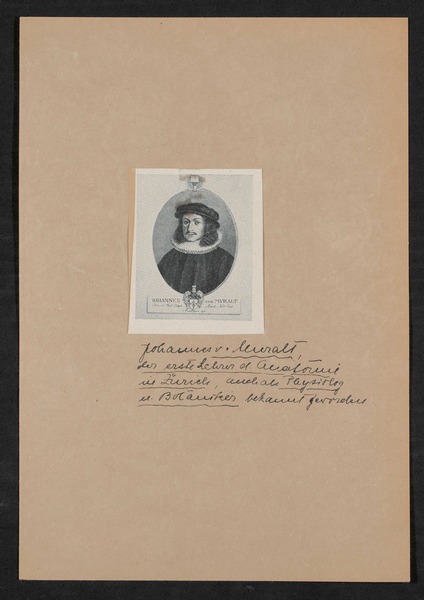 IOHANNES von MVRALT
Johannes v. Muralt,
der erste Lehrer d Anatomie
in Zürich, auch als Physiolog
u Botaniker bekannt geworden